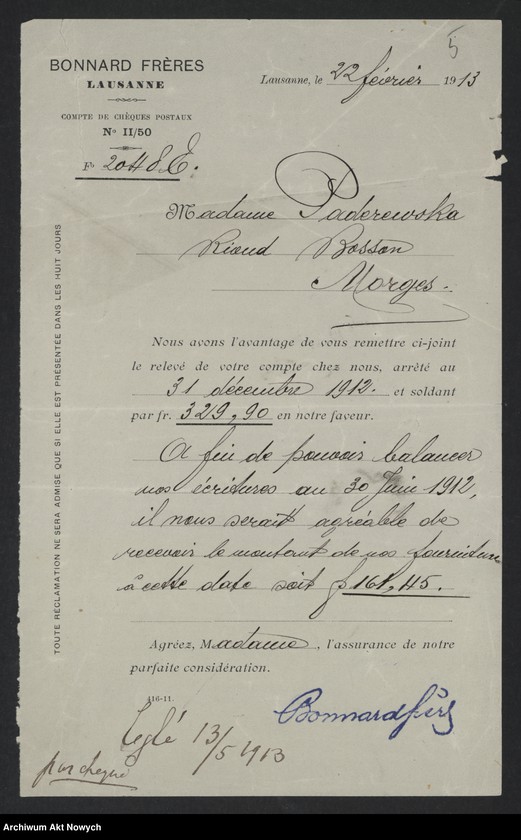 5
BONNARD FRÈRES
LAUSANNE
COMPTE DE CHÈQUES POSTAUX
No II/50
Fo 2048 E.
Lausanne, le 22 février 1913
Madame Paderewska
Riond Bosson
Morges.
TOUTE RÉCLAMATION NE SERA ADMISE QUE SI ELLE EST PRÉSENTÉE DANS LES HUIT JOURS
Nous avons l'avantage de vous remettre ci-joint
le relevé de votre compte chez nous, arrêté au
31 décembre 1912. et soldant
par fr. 329,90 en notre faveur.
A fin de pouvoir balancer
nos écritures au 30 Juin 1912,
il nous serait agréable de
recevoir le montant de nos fournitures
à cette date soit f 168,45.
Agréez, Madame, l'assurance de notre
parfaite considération.
416-11.
Bonnard frères
Réglé 13/5 1913
par chèque
Archiwum Akt Nowych